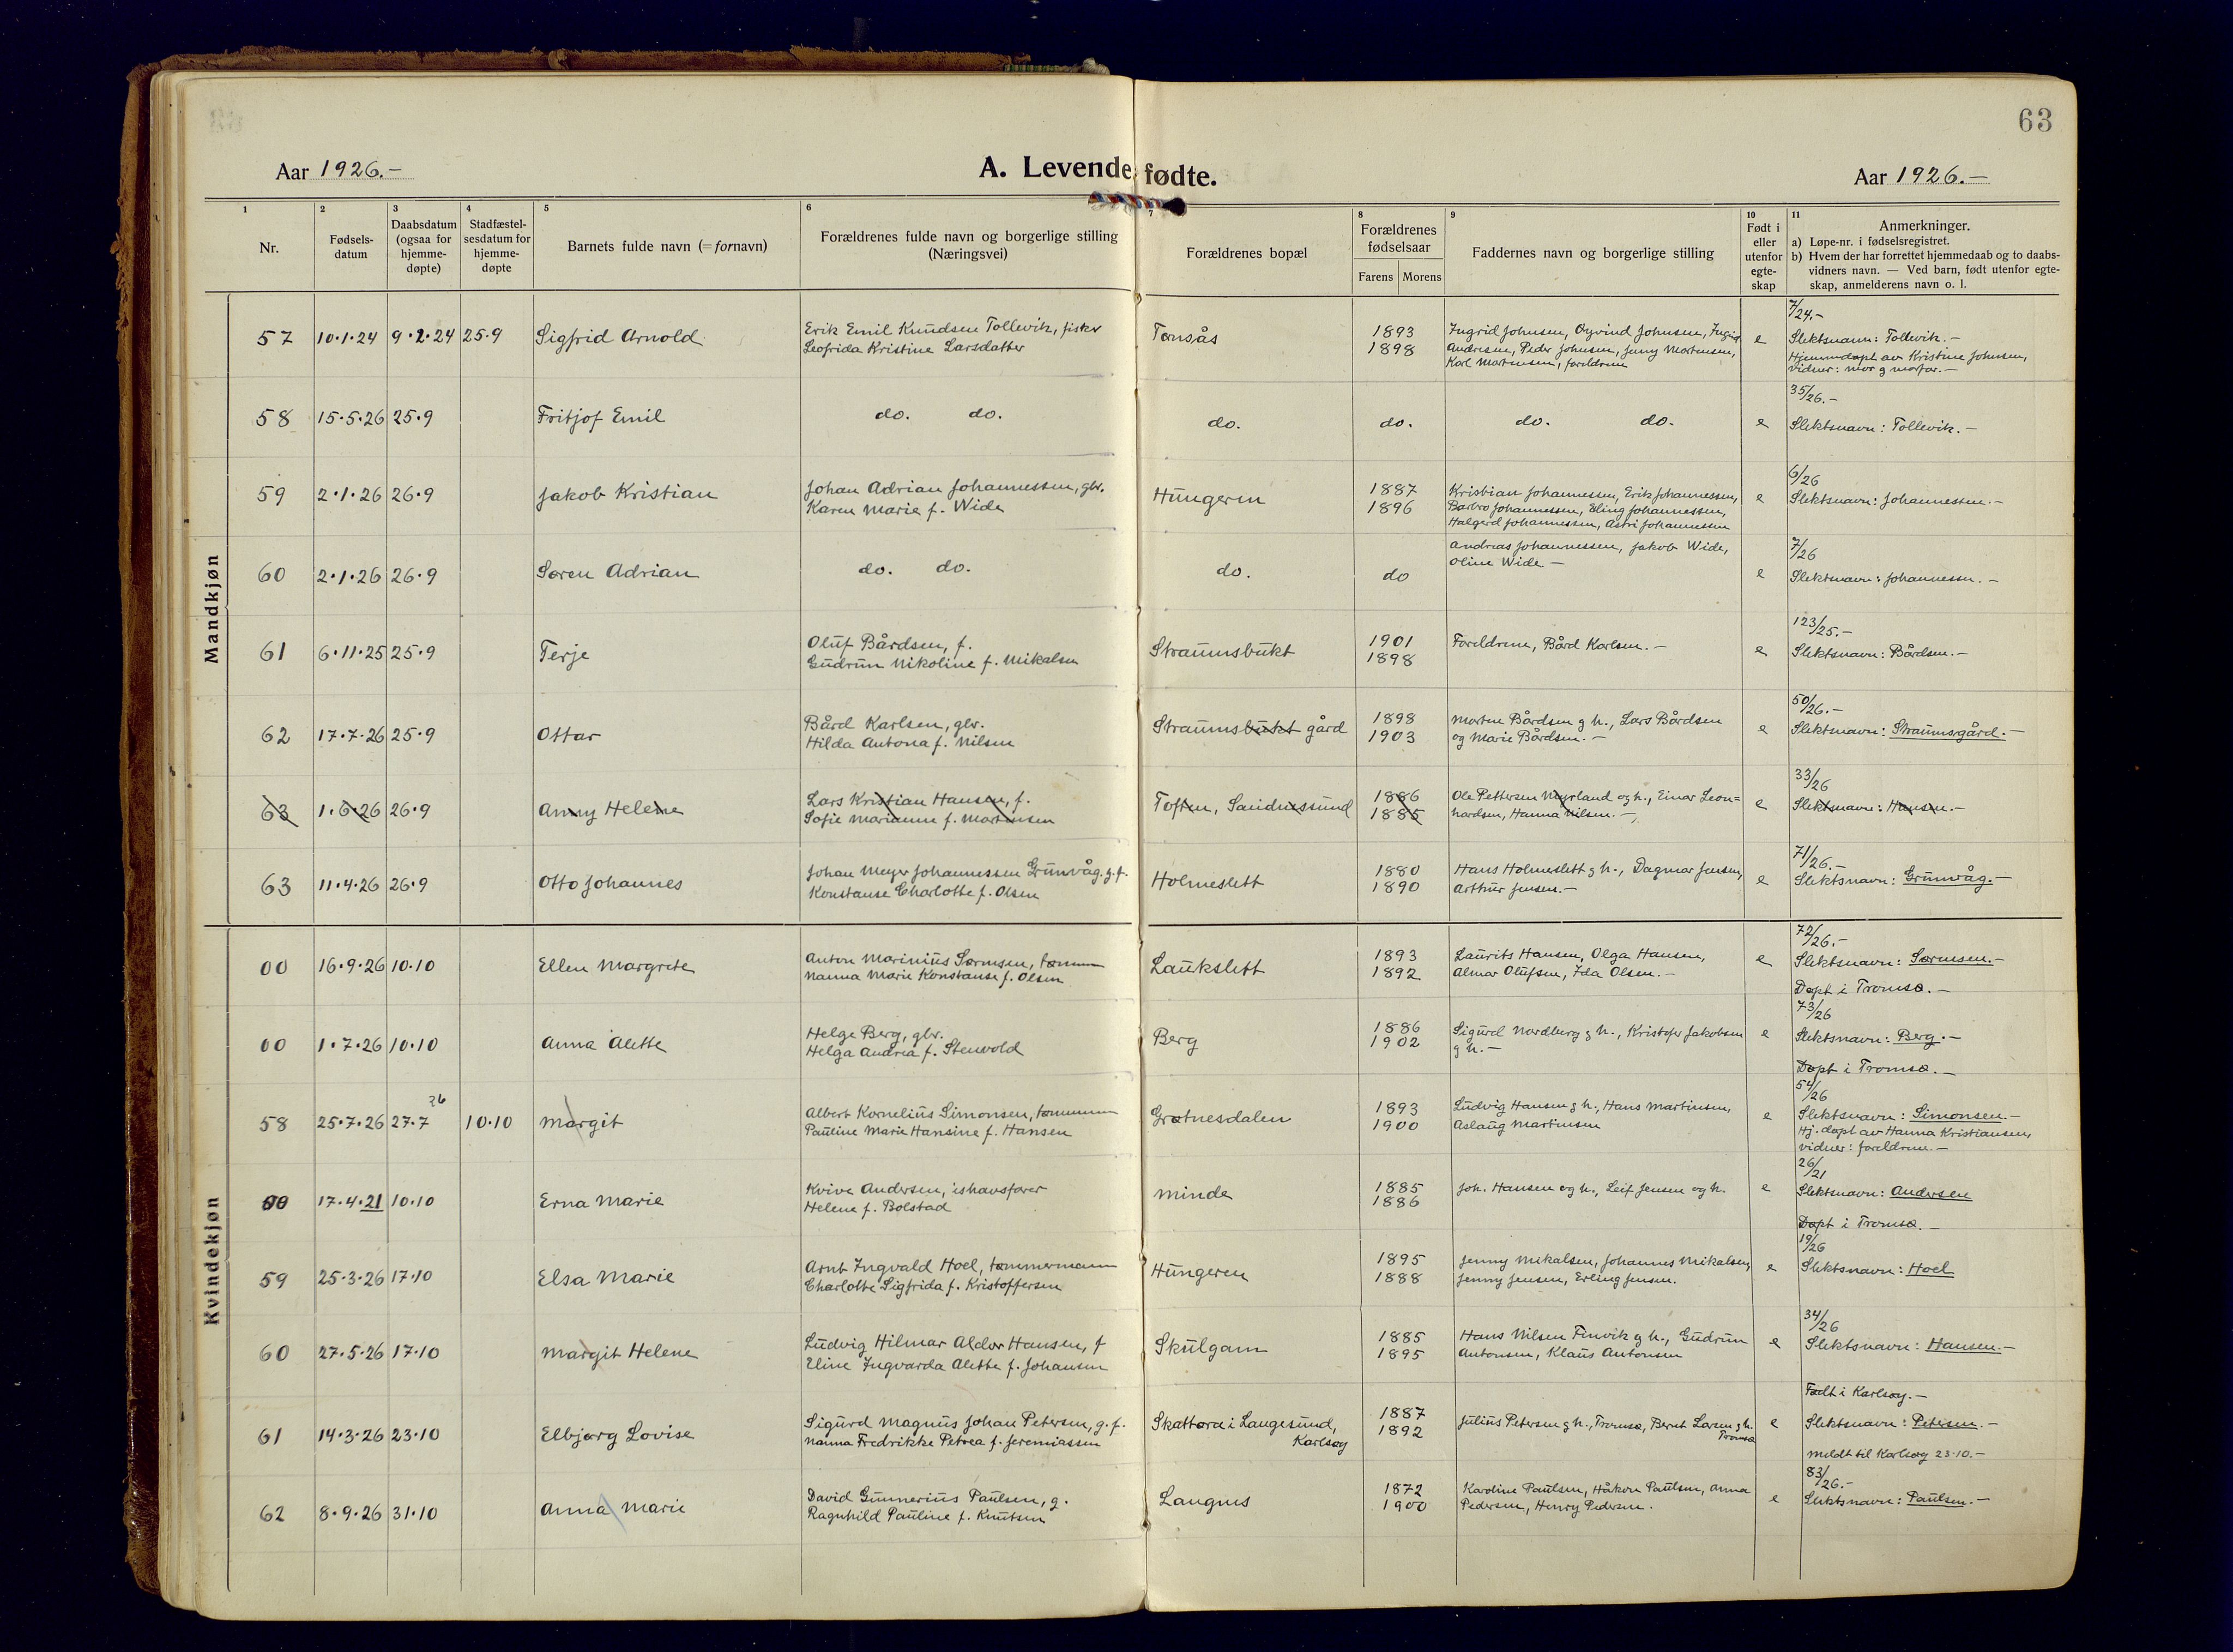 63
Aar 1926.-
A. Levende fødte.
Aar 1926.-
1 2 3 4 5 6 7 8 9 10 11
Nr.
Fødsels-
datum
Daabsdatum
(ogsaa for
hjemme-
døpte)
Stadfæstel-
sesdatum for
hjemme-
døpte
Barnets fulde navn (=fornavn)
Forældrenes fulde navn og borgerlige stilling
(Næringsvei)
Forældrenes bopæl
Forældrenes
fødselsaar
Farens Morens
Faddernes navn og borgerlige stilling
Født i
eller
utenfor
egte-
skap
Anmerkninger.
a) Løpe-nr. i fødselsregistret.
b) Hvem der har forrettet hjemmedaab og to daabs-
vidners navn. — Ved barn, født utenfor egte-
skap, anmelderens navn o. l.
Mandkjøn
57 10.1.24 9.2.24 25.9 Sigfrid Arnold
Erik Emil Knudsen Tollevik, fisker
Leofrida Kristine Larsdatter
Tønsås
1893
1898
Ingrid Johnsen, Øyvind Johnsen, Ingrid
Andresen, Peder Johnsen, Jenny Mortensen,
Karl Mortensen, foreldrene
e
7/24.-
Slektsnavn: Tollevik.-
Hjemmedøpt av Kristine Johnsen,
vidner: mor g morfar.-
58 15.5.26 25.9 Fritjof Emil
do. do.
do.
do.
do. do.
e
35/26.-
Slektsnavn: Tollevik.-
59 2.1.26 26.9 Jakob Kristian
Johan Adrian Johannessen, gbr.
Karen Marie f. Wide
Hungeren
1887
1896
Kristian Johannessen, Erik Johannessen,
Barbro Johannessen, Eling Johannessen,
Halgerd Johannessen, Astri Johannessen
e
6/26
Slektsnavn: Johannessen.-
60 2.1.26 26.9 Søren Adrian
do. do.
do.
do
Andreas Johannessen, Jakob Wide,
Oline Wide -
e
7/26
Slektsnavn: Johannessn.-
61 6.11.25 25.9 Terje
Oluf Bårdsen, f.
Gudrun Nikoline f. Mikalsen
Straumsbukt
1901
1898
Foreldrene, Bård Karlsen.-
e
123/25.-
Slektsnavn: Bårdsen.-
62 17.7.26 25.9 Ottar
Bård Karlsen, gbr.
Hilda Antona f. Nilsen
Straumsbukt gård
1898
1903
Morten Bårdsen g h., Lars Bårdsen
og Marie Bårdsen.-
e
50/26.-
Slektsnavn: Straumsgård.-
63 1.6.26 26.9 Anny Helene
Lars Kristian Hansen, f.
Sofie Marianne f. Mortensen
Toften, Sandnessund
1886
1885
Ole Pettersen Myrland og h., Einar Leon=
hardsen, Hanna Nilsen.-
e
33/26
Slektsnavn: Hansen.-
63 11.4.26 26.9 Otto Johannes
Johan Meyer Johannessen Grunvåg, g.f.
Konstanse Charlotte f. Olsen
Holmeslett
1880
1890
Hans Holmeslett g h., Dagmar Jensen,
Arthur Jensen.-
e
71/26.-
Slektsnavn: Grunvåg.-
Kvindekjøn
00 16.9.26 10.10 Ellen Margrete
Anton Marinius Sørensen, tømm
Nanna Marie Konstanse f. Olsen
Laukslett
1893
1892
Laurits Hansen, Olga Hansen,
Almar Olufsen, Ida Olsen.-
e
72/26.-
Slektsnavn: Sørensen.-
Døpt i Tromsø.-
00 1.7.26 10.10 Anna Alette
Helge Berg, gbr.
Helga Andrea f. Stenvold
Berg
1886
1902
Sigurd Nordberg g h., Kristofer Jakobsen
g h.-
e
73/26
Slektsnavn: Berg.-
Døpt i Tromsø.-
58 25.7.26 27.7 26 10.10 Margit
Albert Kornelius Simonsen, tømmerm
Pauline Marie Hansine f. Hansen
Grøtnesdalen
1893
1900
Ludvig Hansen g h., Hans Martinsen,
Aslaug Martinsen
e
54/26
Slektsnavn: Simonsen.-
Hj. døpt av Hanna Kristiansen,
vidner: foreldrene.-
00 17.4.21 10.10 Erna Marie
Kvive Andersen, ishavsfarer
Helene f. Bolstad
Minde
1885
1886
Joh. Hansen og h., Leif Jensen og h.
e
26/21
Slektsnavn: Andersen
Døpt i Tromsø.-
59 25.3.26 17.10 Elsa Marie
Arnt Ingvald Hoel, tømmermann
Charlotte Sigfrida f. Kristoffersen
Hungeren
1895
1888
Jenny Mikalsen, Johannes Mikalsen,
Jenny Jensen, Erling Jensen.
e
19/26
Slektsnavn: Hoel
60 27.5.26 17.10 Margit Helene
Ludvig Hilmar Aldor Hansen, f
Eline Ingvarda Alette f. Johansen
Skulgam
1885
1895
Hans Nilsen Finvik g h., Gudrun
Antonsen, Klaus Antonsen
e
34/26
Slektsnavn: Hansen.-
61 14.3.26 23.10 Elbjørg Lovise
Sigurd Magnus Johan Petersen, g.f.
Nanna Fredrikke Petrea f. Jeremiassen
Skattøra i Langesund,
Karlsøy
1887
1892
Julius Petersen g h., Tromsø, Bernt Larsen g h.
Tromsø
e
Født i Karlsøy.-
Slektsnavn: Petersen.-
Meldt til Karlsøy 23.10.-
62 8.9.26 31.10 Anna Marie
David Gunnerius Paulsen, g.
Ragnhild Pauline f. Knutsen
Langnes
1872
1900
Karoline Paulsen, Håkon Paulsen, Anna
Pedersen, Henry Pedersen.
e
83/26.-
Slektsnavn: Paulsen.-